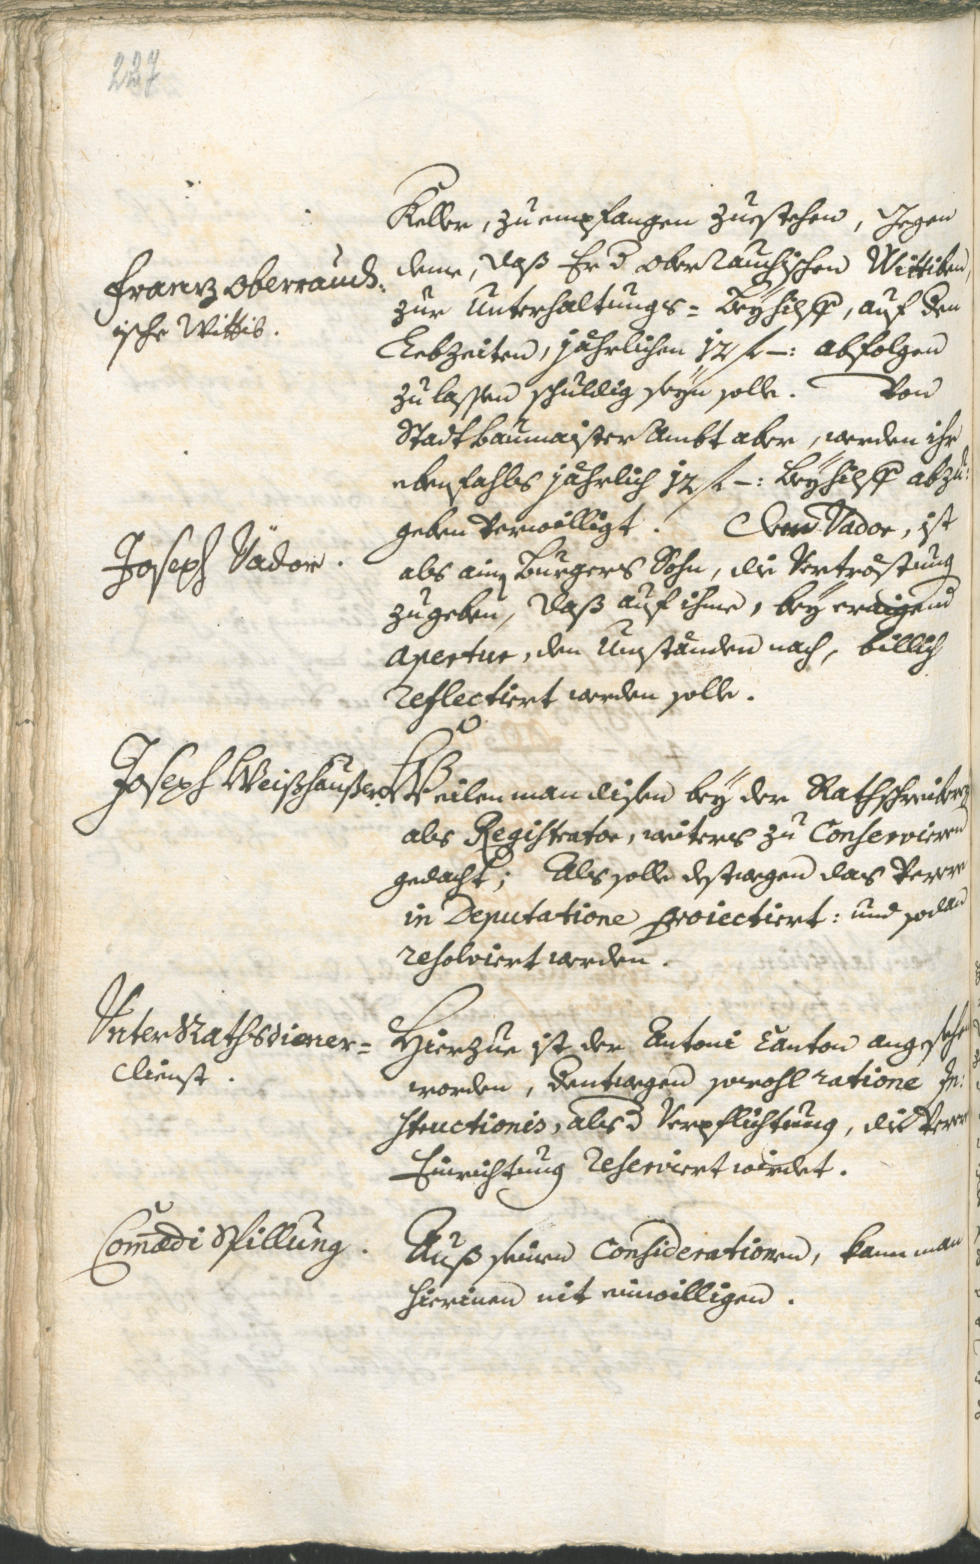 227
Keller, zuempfangen zuestehen, Jegen
Franz Oberrauch-
ische Wittib.
deme, daß Er d Oberrauchischen Wittiben,
zur Unterhaltungs= Beyhilff, auf den
Lebzeiten, jährlichen 12 f –: abfolgen
zu lassen schuldig seyn solle. Von
Stadtbaumaister Ambt aber, werden ihr
ebenfahls jährlich 12 f –: Beyhilff abzu-
geben verwilligt.
Joseph Vädor.
Dem Vador, ist
als ain Burgers Sohn, die Vertröstung
zugeben, daß auf ihme, bey eraigend
Apertur, den Umständen nach, billich
reflectiert werden solle.
Joseph Weißhaußer
Weilen man disen bey der Rathschreiberey
als Registrator, weiters zu Conservieren
gedacht; Als solle destwegen das
in Deputatione proiectiert: und sodan
resolviert werden.
Unter Rathsdiener=
dienst.
Hierzue ist der Antoni Canton angesehen
worden, dentwegen sowohl ratione In:
structionis, als d Verpflichtung, die
Einrichtung reserviert wirdet.
Comædi Spillung.
Auß seinen Considerationen, kann man
hierinen nit einwilligen.